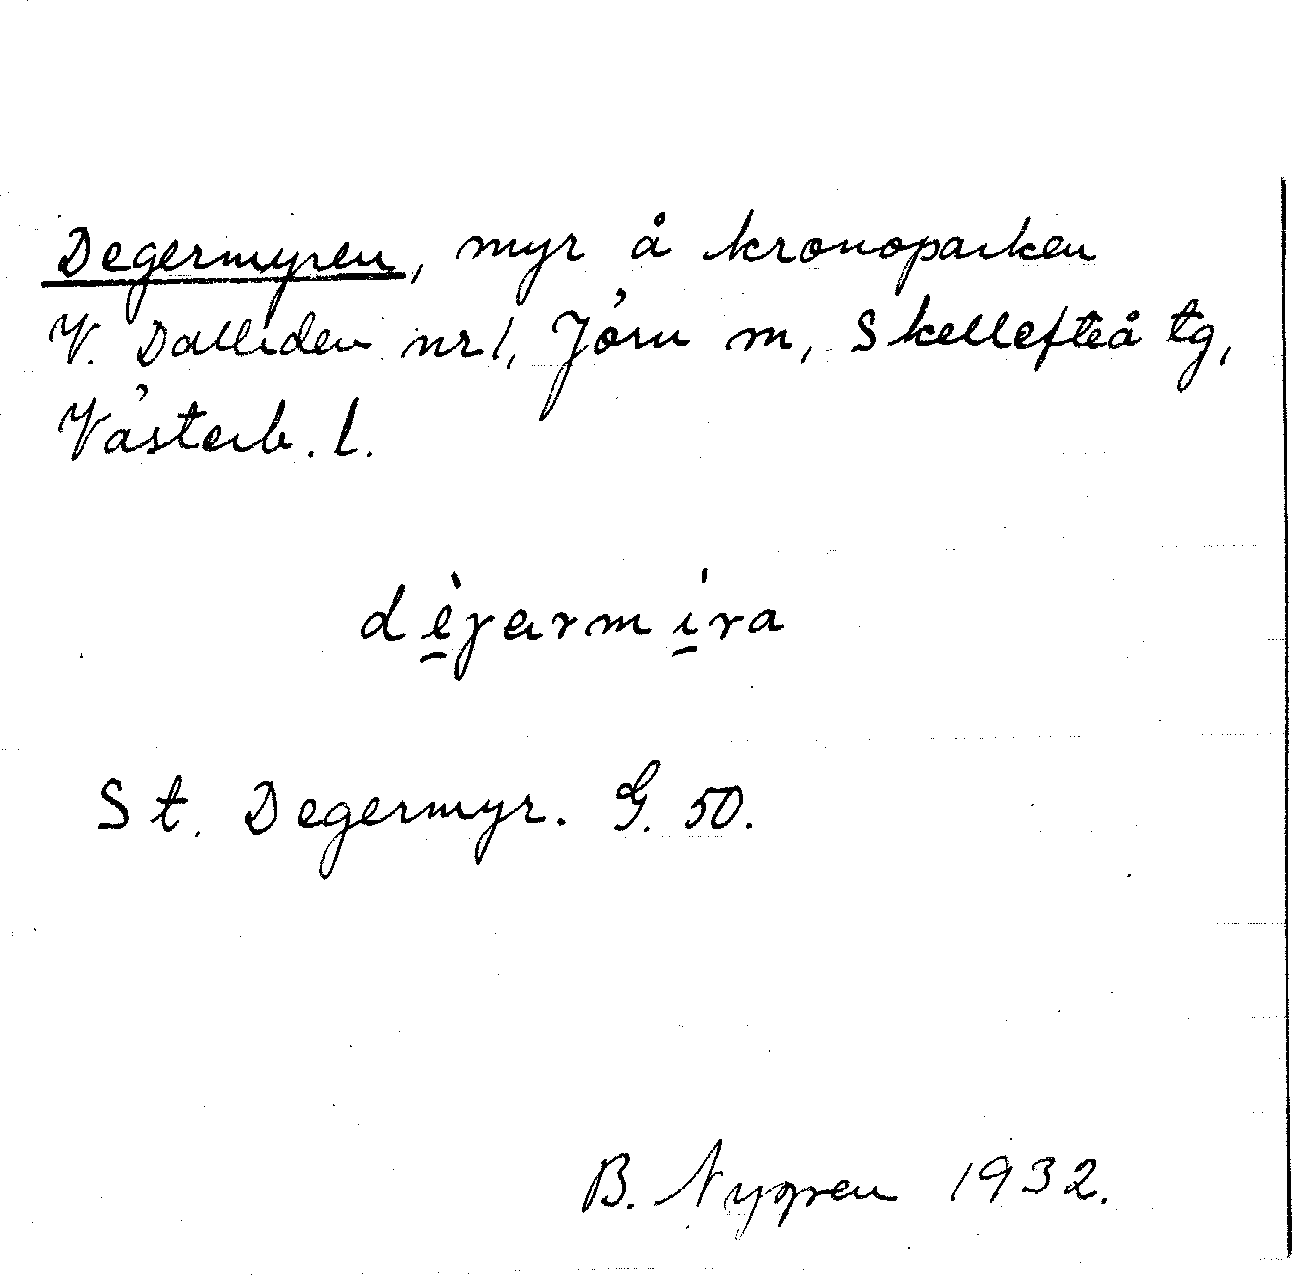 Degermyren, myr å kronoparken
V. Dalliden nr 1, Jörn m, Skellefteå tg,
Västerb. l.
dè̱garmí̱ra
St. Degermyr. G. 50.
B. Nygren 1932.